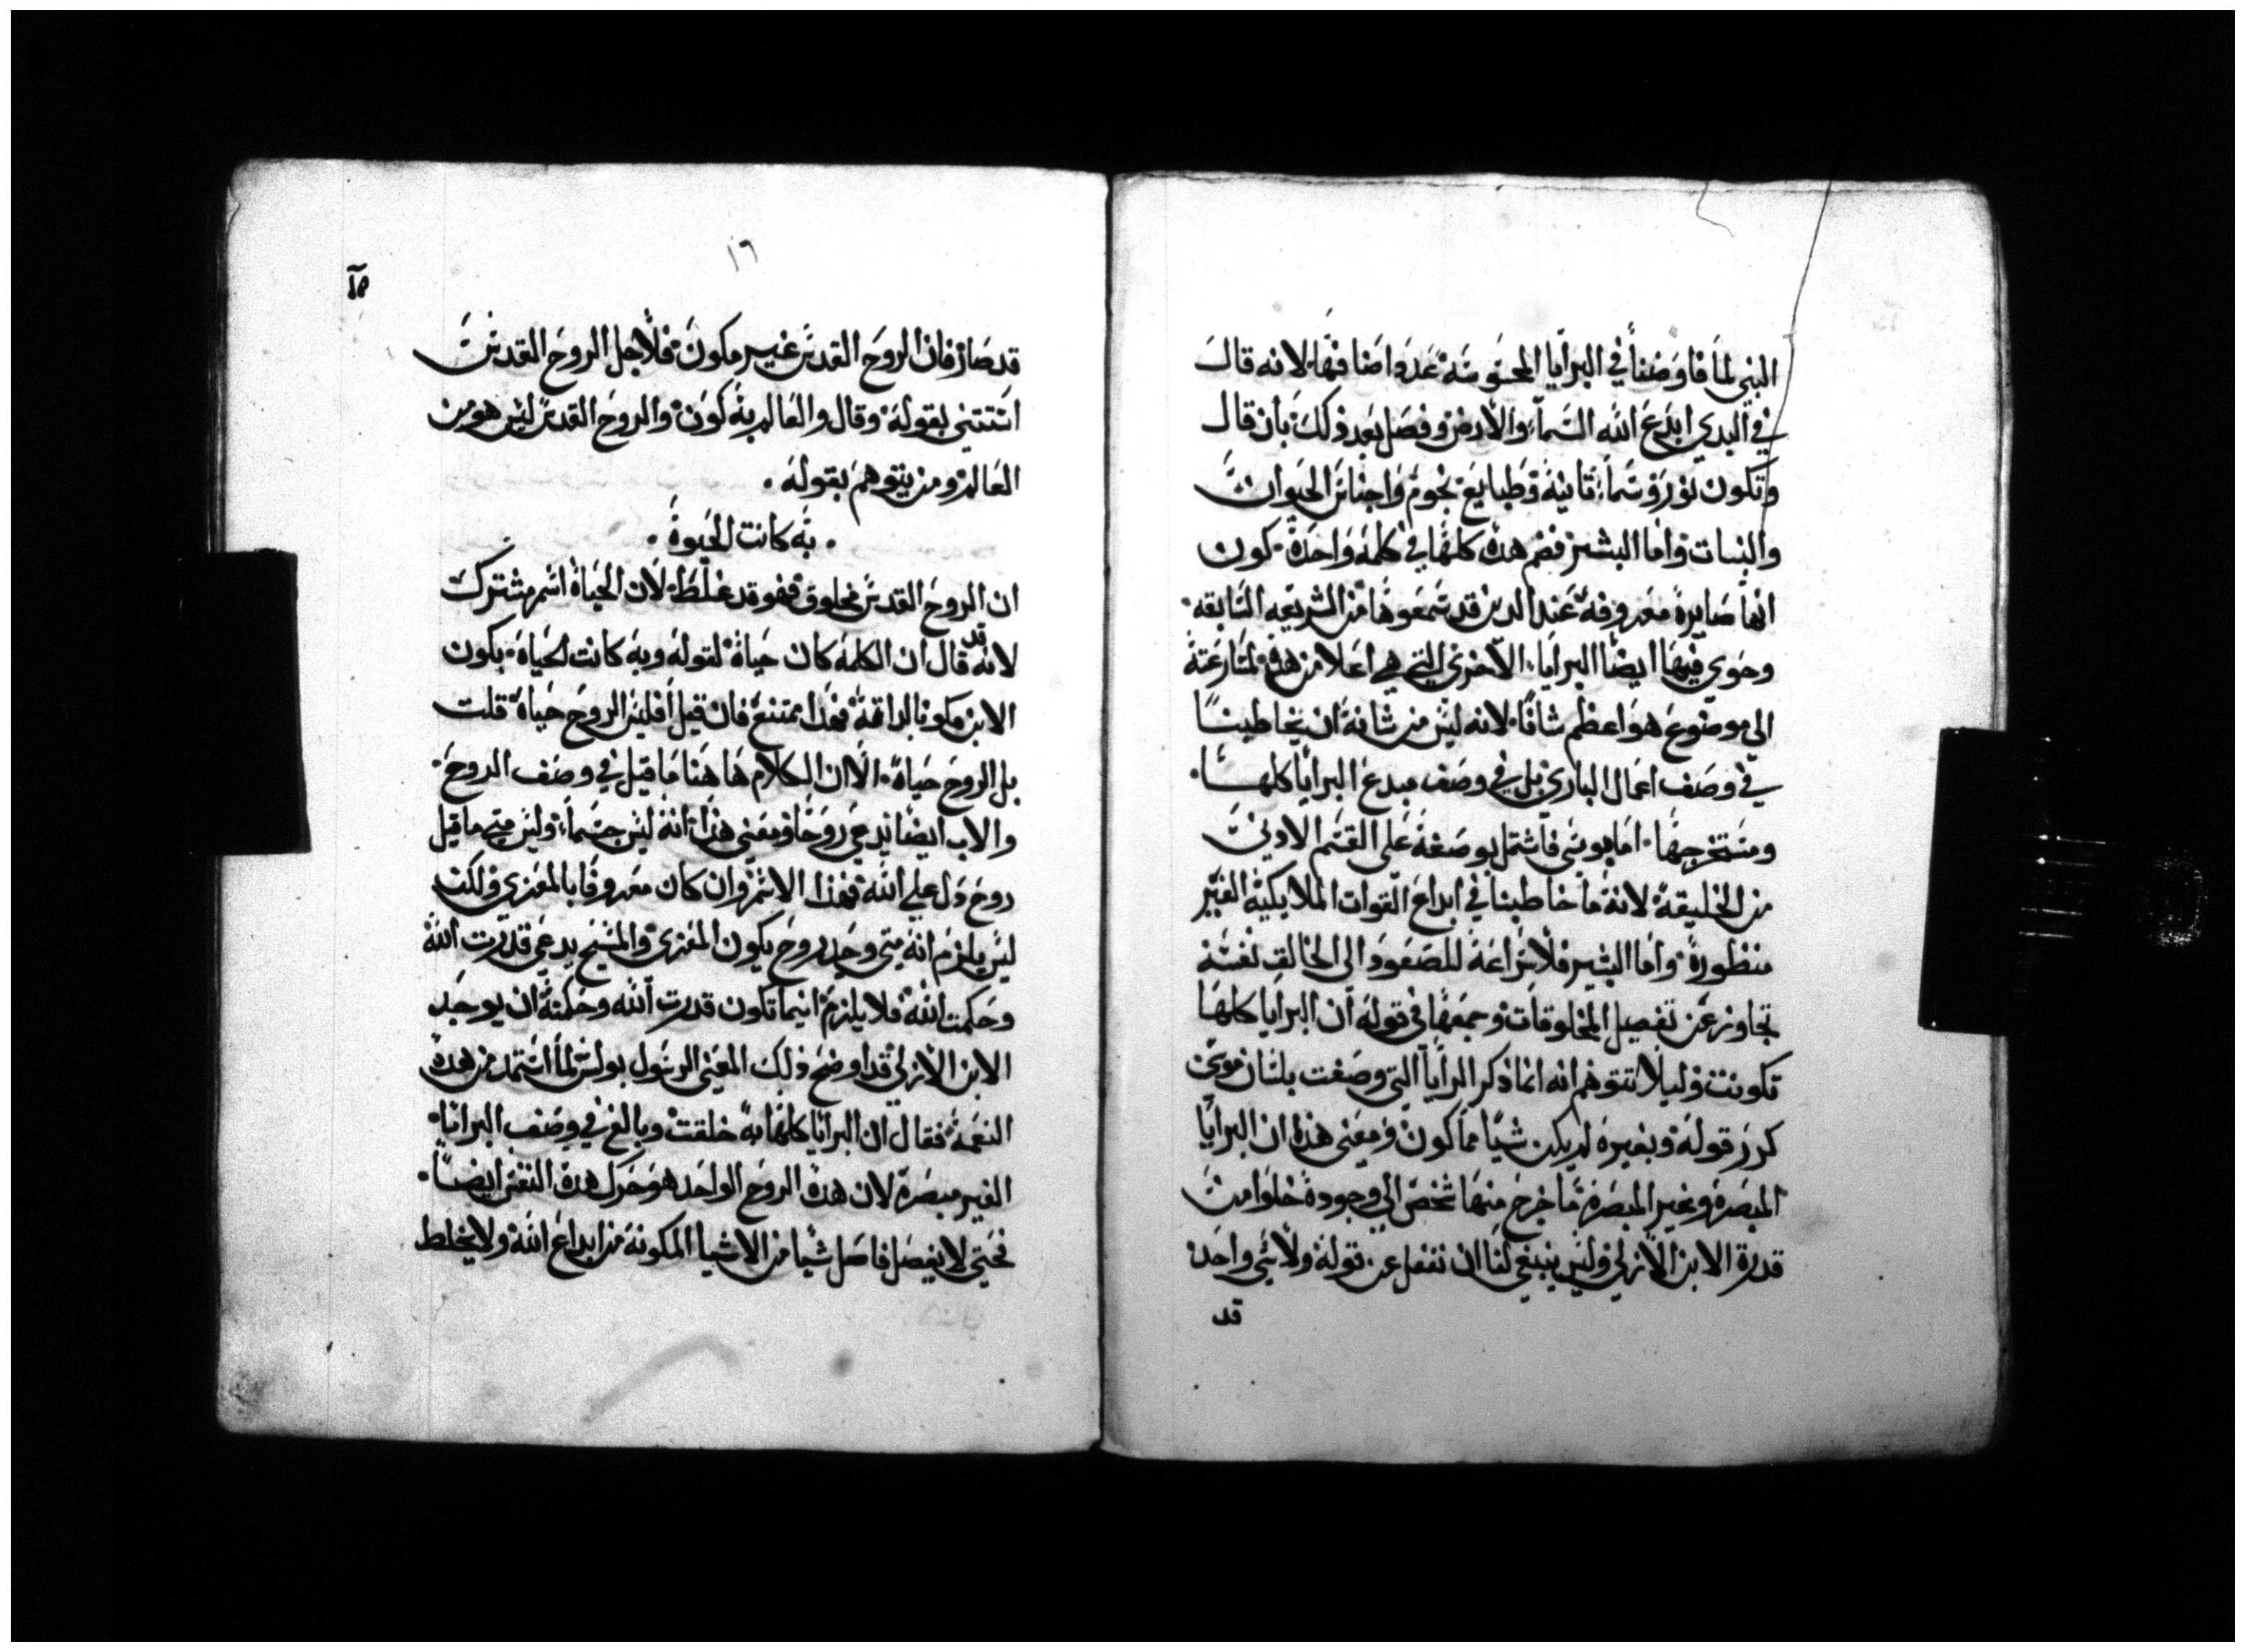 النبي لما فاوضنا في البرايا المحسوسه عددا ضافها لانه قال
في البدي ابدع الله السما والارض وفصل بعد ذلك بان قال
وتكون نور وسما ثانيه وطبايع نجوم واجناس الحيوان
والنبات واما البشير فضم هده كلها في كلمه واحدة كون
انها صايرة معروفه عند الدين قد سمعوها من الشريعه السابقه
وحوي فيها ايضا البرايا الاخري التي هي اعلا من هده لمسارعته
الي موضوع هو اعظم شانا لانه ليس من شانه ان يخاطبنا
في وصف اعمال الباري بل في وصف مبدع البرايا كلها
ومستخرجها اما موسي فاشتمل بوصفه علي القسم الادني
من الخليقة لانه ما خاطبنا في ابداع القوات الملايكية الغير
منظورة واما البشير فلاسراعه للصعود الي الخالق نفسه
تجاوز عن تفصيل المخلوقات وجمعها في قوله ان البرايا كلها
تكونت وليلا تتوهم انه انما ذكر البرايا التي وصفت بلسان موسي
كرر قوله وبغيره لم يكن شيا مما كون ومعني هدا ان البرايا
المبصرة وغير المبصرة ما خرج منها شخص الي وجوده خلوا من
قدرة الابن الازلي وليس ينبغي لنا ان نغفل عن قوله ولا شي واحد
قد
١٦
قد صار فان الروح القدس غير مكون فلاجل الروح القدس
استتني بقوله وقال والعالم به كون والروح القدس ليس هو من
العالم ومن يتوهم بقوله
به كانت الحيوة
ان الروح القدس مخلوق فهو قد غلط لان الحياة اسم مشترك
لانه قد قال ان الكلمه كان حياة لقوله وبه كانت الحياة بكون
الابن مكونا لداته فهدا ممتنع فان قيل افليس الروح حياة قلت
بل الروح حياة الا ان الكلام هاهنا ما قيل في وصف الروح
والاب ايضا يدعي روحا ومعني هدا انه ليس جسما وليس متي ما قيل
روح دل علي الله فهدا الاسم وان كان معروفا بالمعزي ولكن
ليس يلزم انه متي وجد روح يكون المعزي والمسيح يدعي قدرت الله
وحكمت الله فلا يلزم اينما تكون قدرت الله وحكمته ان يوجد
الابن الازلي قد اوضح ذلك المعني الرسول بولس لما استمد من هده
النعمة فقال ان البرايا كلها به خلقت وبالغ في وصف البرايا
الغير مبصرة لان هده الروح الواحد هو حرك هده النفس ايضا
فحتي لا يفصل فاصل شيا من الاشيا المكونه من ابداع الله ولا يخلط